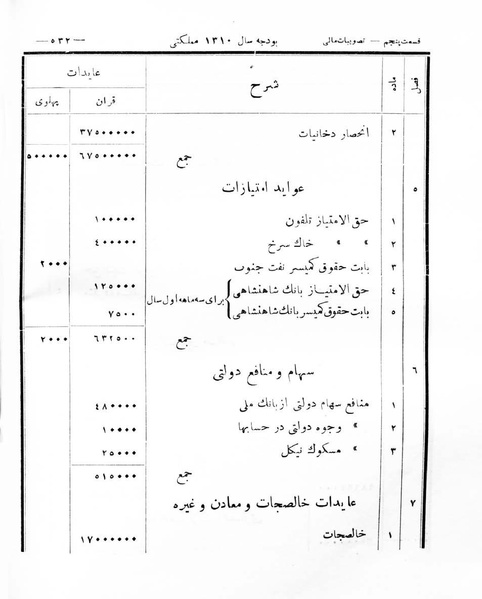 قسمت پنجم — تصویبات مالی بودجه سال ۱۳۱۰ مملکتی — ۵۳۲ —
فصل ماده شرح عایدات
قران پهلوی
۲ انحصار دخانیات ۳۷۵۰۰۰۰۰
جمع ۶۷۵۰۰۰۰۰ ۵۰۰۰۰۰
۵ عواید امتیازات
۱ حق الامتیاز تلفون ۱۰۰۰۰۰
۲ » » خاك سرخ ۴۰۰۰۰۰
۳ بابت حقوق کمیسر نفت جنوب ۲۰۰۰
۴ حق الامتیاز بانك شاهنشاهی ۱۲۵۰۰۰
برای سه ماهه اول سال
۵ بابت حقوق کمیسر بانك شاهنشاهی ۷۵۰۰
جمع ۶۳۲۵۰۰ ۲۰۰۰
۶ سهام و منافع دولتی
۱ منافع سهام دولتی از بانك ملی ۴۸۰۰۰۰
۲ » وجوه دولتی در حسابها ۱۰۰۰۰
۳ » مسکوك نیکل ۲۵۰۰۰
جمع ۵۱۵۰۰۰
۷ عایدات خالصجات و معادن و غیره
۱ خالصجات ۱۷۰۰۰۰۰۰